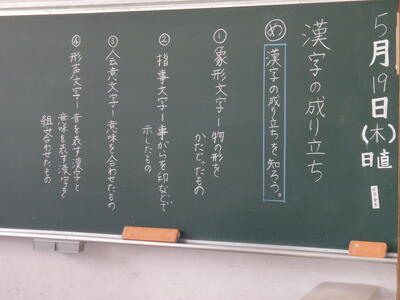 5月19日(木)
日直
漢字の成り立ち
め 漢字の成り立ちを知ろう。
① 象形文字ー物の形を
かたどったもの
② 指事文字ー事がらを印などで
示したもの
③ 会意文字ー意味を合わせたもの
④ 形声文字ー音を表す漢字と
意味を表す漢字を
組み合わせたもの